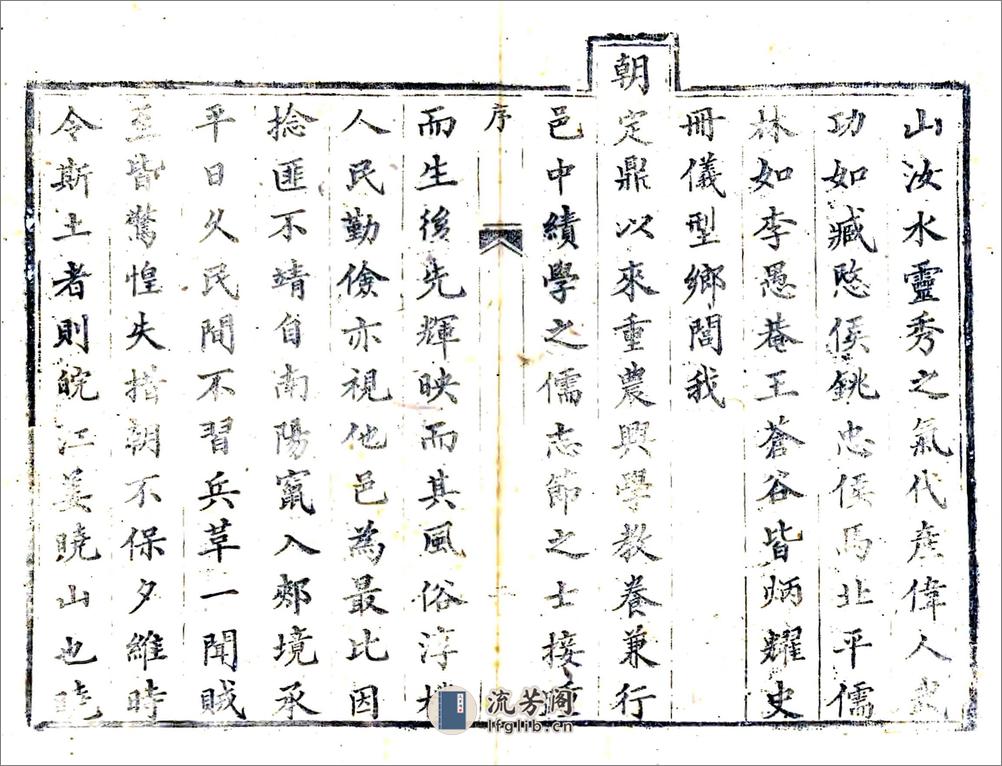 山汝水靈秀之氣代產偉人武
功如臧愍侯銚忠侯馬北平儒
林如李愚菴王蒼谷皆炳耀史
冊儀型鄉閭我
朝定鼎以來重農興學教養兼行
邑中績學之儒志節之士接踵
序
一
而生後先輝映而其風俗淳樸
人民勤儉亦視他邑為最比因
捻匪不靖自南陽竄入郟境承
平日久民間不習兵革一聞賊
至皆驚惶失措朝不保夕維時
令斯土者則皖江姜曉山也曉
流芳阁
lfglib.cn